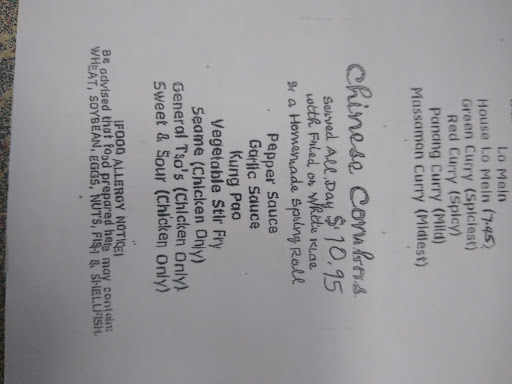 Lo Mein
House Lo Mein (7.95)
Green Curry (Spiciest)
Red Curry (Spicy)
Panang Curry (Mild)
Massaman Curry (Mildest)
Chinese Combos
Served All Day $10.95
with Fried or White Rice
or a Homemade Spring Roll
Pepper Sauce
Garlic Sauce
Kung Pao
Vegetable Stir Fry
Seame (Chicken Only)
General Tso's (Chicken Only)
Sweet & Sour (Chicken Only)
!FOOD ALLERGY NOTICE!
Be advised that food prepared here may contain:
WHEAT, SOYBEAN, EGGS, NUTS, FISH & SHELLFISH.